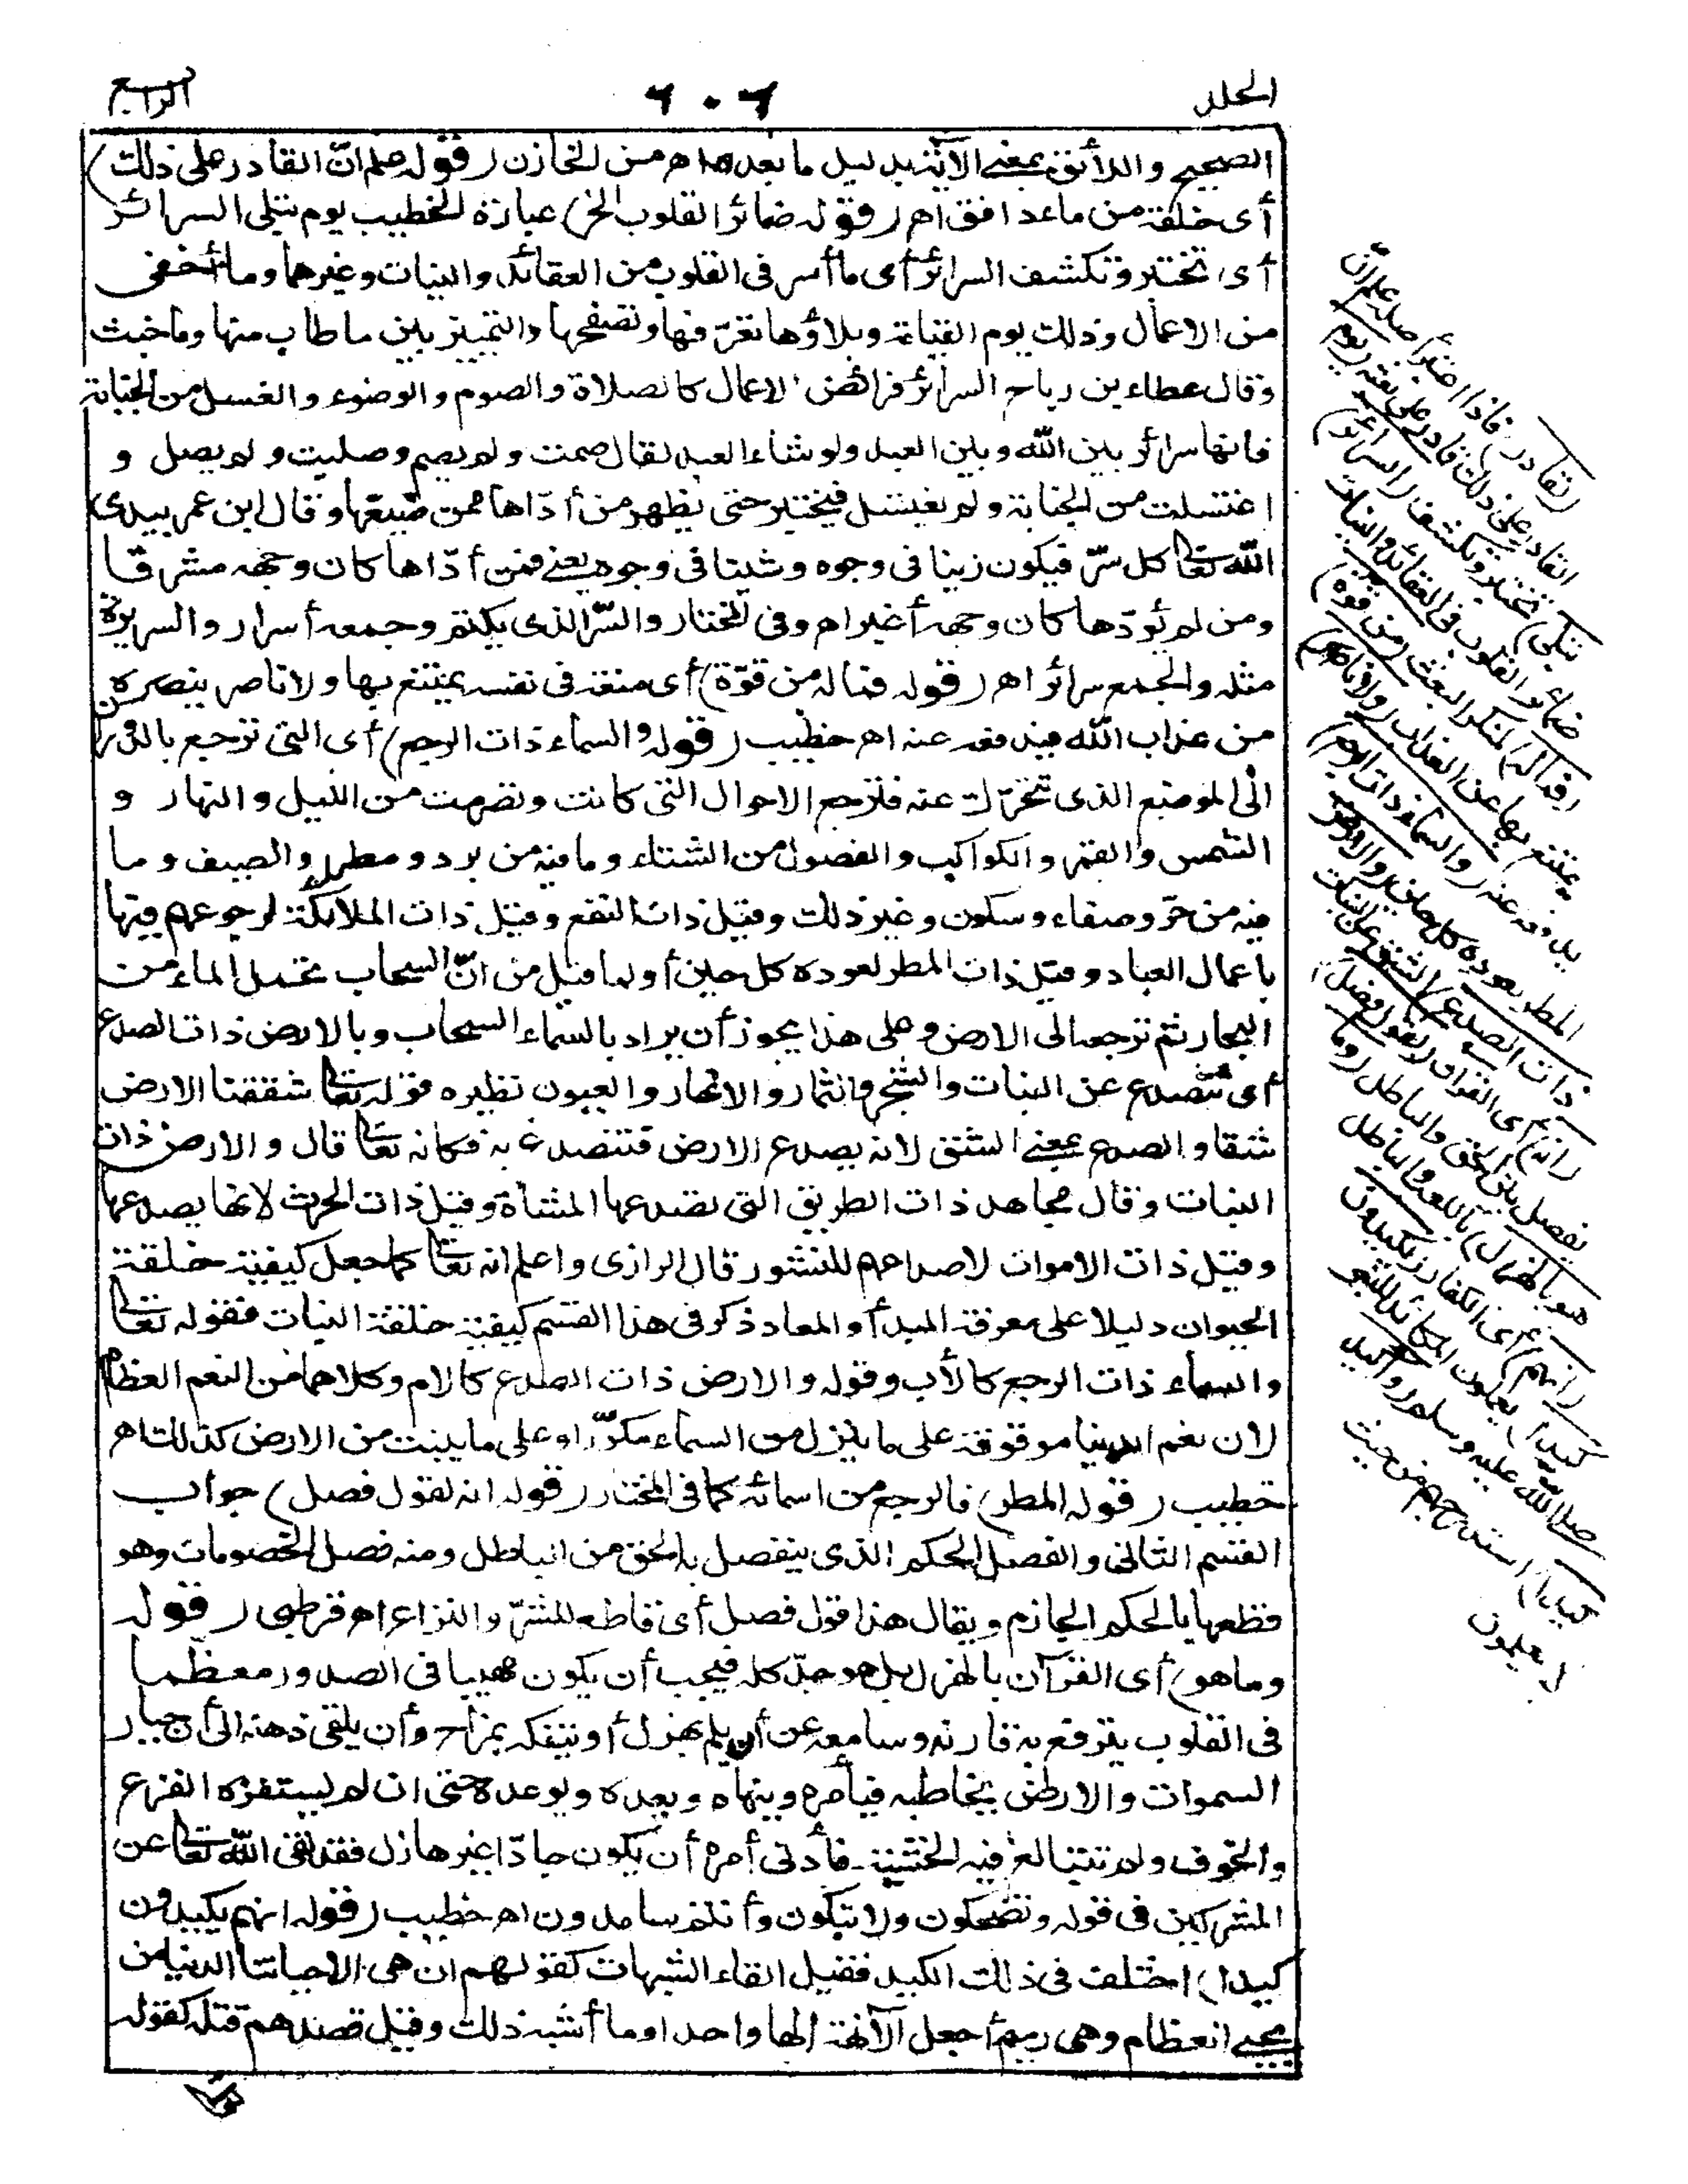 الجلد
٦٠٦
الرابع
الصحيح واللائق بمعنى الآية بدليل ما بعده اه من الخازن (قوله علم انّ القادر على ذلك)
أى خلقته من ماء دافق اه (قوله ضمائر القلوب الخ) عبارة الخطيب يوم تبلى السرائر
أى تختبر وتكشف السرائر أى ما أسر فى القلوب من العقائد والنيات وغيرهما وما أخفى
من الاعمال وذلك يوم القيامة وبلاؤها تعرّفها وتصفحها والتمييز بين ما طاب منها وما خبث
وقال عطاء بن رباح السرائر فرائض الاعمال كالصلاة والصوم والوضوء والغسل من الجنابة
فانها سرائر بين الله وبين العبد ولو شاء العبد لقال صمت ولم يصم وصليت ولم يصل و
اغتسلت من الجنابة ولم يغتسل فيختبر حتى يظهر من أدّاها ممن ضيعها وقال ابن عمر يبدى
الله تعالى كل سرّ فيكون زينا فى وجوه وشينا فى وجوه يعنى فمن أدّاها كان وجهه مشرقا
ومن لم يؤدّها كان وجهه أغبر اه وفى المختار والسّر الذى يكتم وجمعه أسرار والسريرة
مثله والجمع سرائر اه (قوله فماله من قوّة) أى منعة فى نفسه يمتنع بها ولا ناصر ينصره
من عذاب الله فيدفعه عنه اه خطيب (قوله والسماء ذات الرجع) أى التى ترجع بالدوران
الى الموضع الذى تتحرّك عنه فترجع الاحوال التى كانت وتصرمت من الليل والنهار و
الشمس والقمر والكواكب والفصول من الشتاء وما فيه من برد ومطر والصيف وما
فيه من حرّ وصفاء وسكون وغير ذلك وقيل ذات النفع وقيل ذات الملائكة لرجوعهم فيها
باعمال العباد وقيل ذات المطر لعوده كل حين أو لما قيل من انّ السحاب تحمل الماء من
البحار ثم ترجعه الى الارض وعلى هذا يجوز أن يراد بالسماء السحاب وبالارض ذات الصدع
أى تتصدع عن النبات والشجر والثمار والانهار والعيون نظيره قوله تعالى شققنا الارض
شقا والصدع بمعنى الشق لانه يصدع الارض فتنصدع به فكانه تعالى قال والارض ذات
النبات وقال مجاهد ذات الطريق التى تصدعها المشاة وقيل ذات الحرث لانها يصدعها
وقيل ذات الاموات لانصداعهم للنشور قال الرازى واعلم انه تعالى كما جعل كيفية خلقة
الحيوان دليلا على معرفة المبدأ والمعاد ذكر فى هذا القسم كيفية خلقة النبات فقوله تعالى
والسماء ذات الرجع كالأب وقوله والارض ذات الصدع كالام وكلاهما من النعم العظام
لان نعم الدنيا موقوفة على ما ينزل من السماء مكرّرا وعلى ما ينبت من الارض كذلك اه
خطيب (قوله المطر) فالرجع من اسمائه كما فى المختار (قوله انه لقول فصل) جواب
القسم الثانى والفصل الحكم الذى ينفصل به الحق من الباطل ومنه فصل الخصومات وهو
قطعها بالحكم الجازم ويقال هذا قول فصل أى قاطع للشرّ والنزاع اه قرطبى (قوله
وما هو) أى القرآن بالهزل بل هو جدّ كله فيجب أن يكون مهيبا فى الصدور معظّما
فى القلوب يترفع به قارئه وسامعه عن أن يلم بهزل أو يتفكه بمزاح وأن يلقى ذهنه الى أن جبار
السموات والارض يخاطبه فيأمره وينهاه ويعده ويوعده حتى ان لم يستفزه الفزع
والخوف ولم تتبالغ فيه الخشية فأدنى أمره أن يكون جادّا غير هازل فقد نفى الله تعالى عن
المشركين فى قوله وتضحكون ولا تبكون وأنتم سامدون اه خطيب (قوله انهم يكيدون
كيدا) اختلف فى ذلك الكيد فقيل القاء الشبهات كقولهم ان هى الا حياتنا الدنيا من
يحيى العظام وهى رميم أجعل الآلهة الها واحدا وما أشبه ذلك وقيل قصدهم قتله كقوله
القادر) فاذا اعتبر أصله علم انّ
القادر على ذلك قادر على بعثه (يوم
تبلى) تختبر وتكشف (السرائر)
ضمائر القلوب فى العقائد والنيات
(فماله) لمنكر البعث (من قوّة)
يمتنع بها عن العذاب (ولا ناصر)
يدفعه عنه (والسماء ذات الرجع)
المطر لعوده كل حين (والارض
ذات الصدع) الشق عن النبات
(انه) أى القرآن (لقول فصل)
يفصل بين الحق والباطل (وما
هو بالهزل) باللعب والباطل
(انهم) أى الكفار (يكيدون
كيدا) يعملون المكائد للنبى
صلى الله عليه وسلم (وأكيد
كيدا) استدرجهم من حيث
لا يعلمون